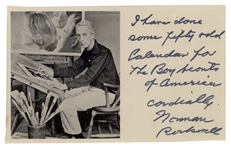 I have done
some fifty odd
Calendar for
The Boy Scouts
of America
cordially
Norman
Rockwell